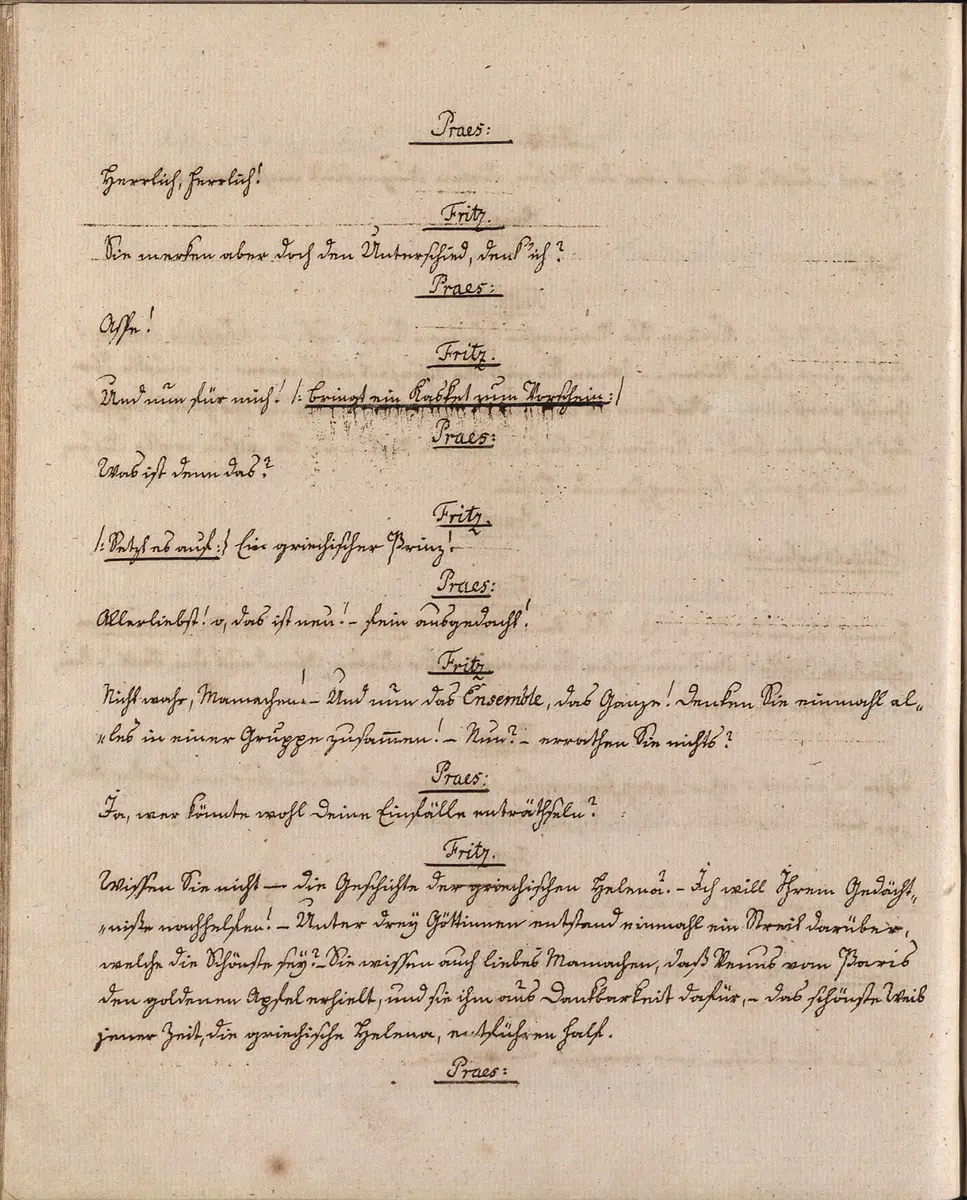 Praes:
Herrlich, herrlich!
Fritz.
Sie merken aber doch den Unterschied, denk' ich?
Praes:
Affe!
Fritz.
Und nun für mich! /: bringt ein Kasket zum Vorschein :/
Praes:
Was ist denn das?
Fritz.
/: Setzt es auf :/ Ein griechischer Prinz!
Praes:
Allerliebst! o, das ist neu! – fein ausgedacht!
Fritz.
Nicht wahr, Mamachen! – Und nun das Ensemble, das Ganze! Denken Sie einmahl al„
„les in einer Gruppe zusam̅en! – Nun? – errathen Sie nichts?
Praes:
Ja, wer könnte wohl deine Einfälle enträthseln?
Fritz.
Wissen Sie nicht — die Geschichte der griechischen Helena? – Ich will Ihrem Gedächt„
„niße nachhelfen! – Unter drey Göttinnen entstand einmahl ein Streit darüber,
welche die Schönste sey? – Sie wissen auch liebes Mamachen, daß Venus vom Paris
den goldenen Apfel erhielt, und sie ihm aus Dankbarkeit dafür, – das schönste Weib
jener Zeit, die griechische Helena, entführen half.
Praes: